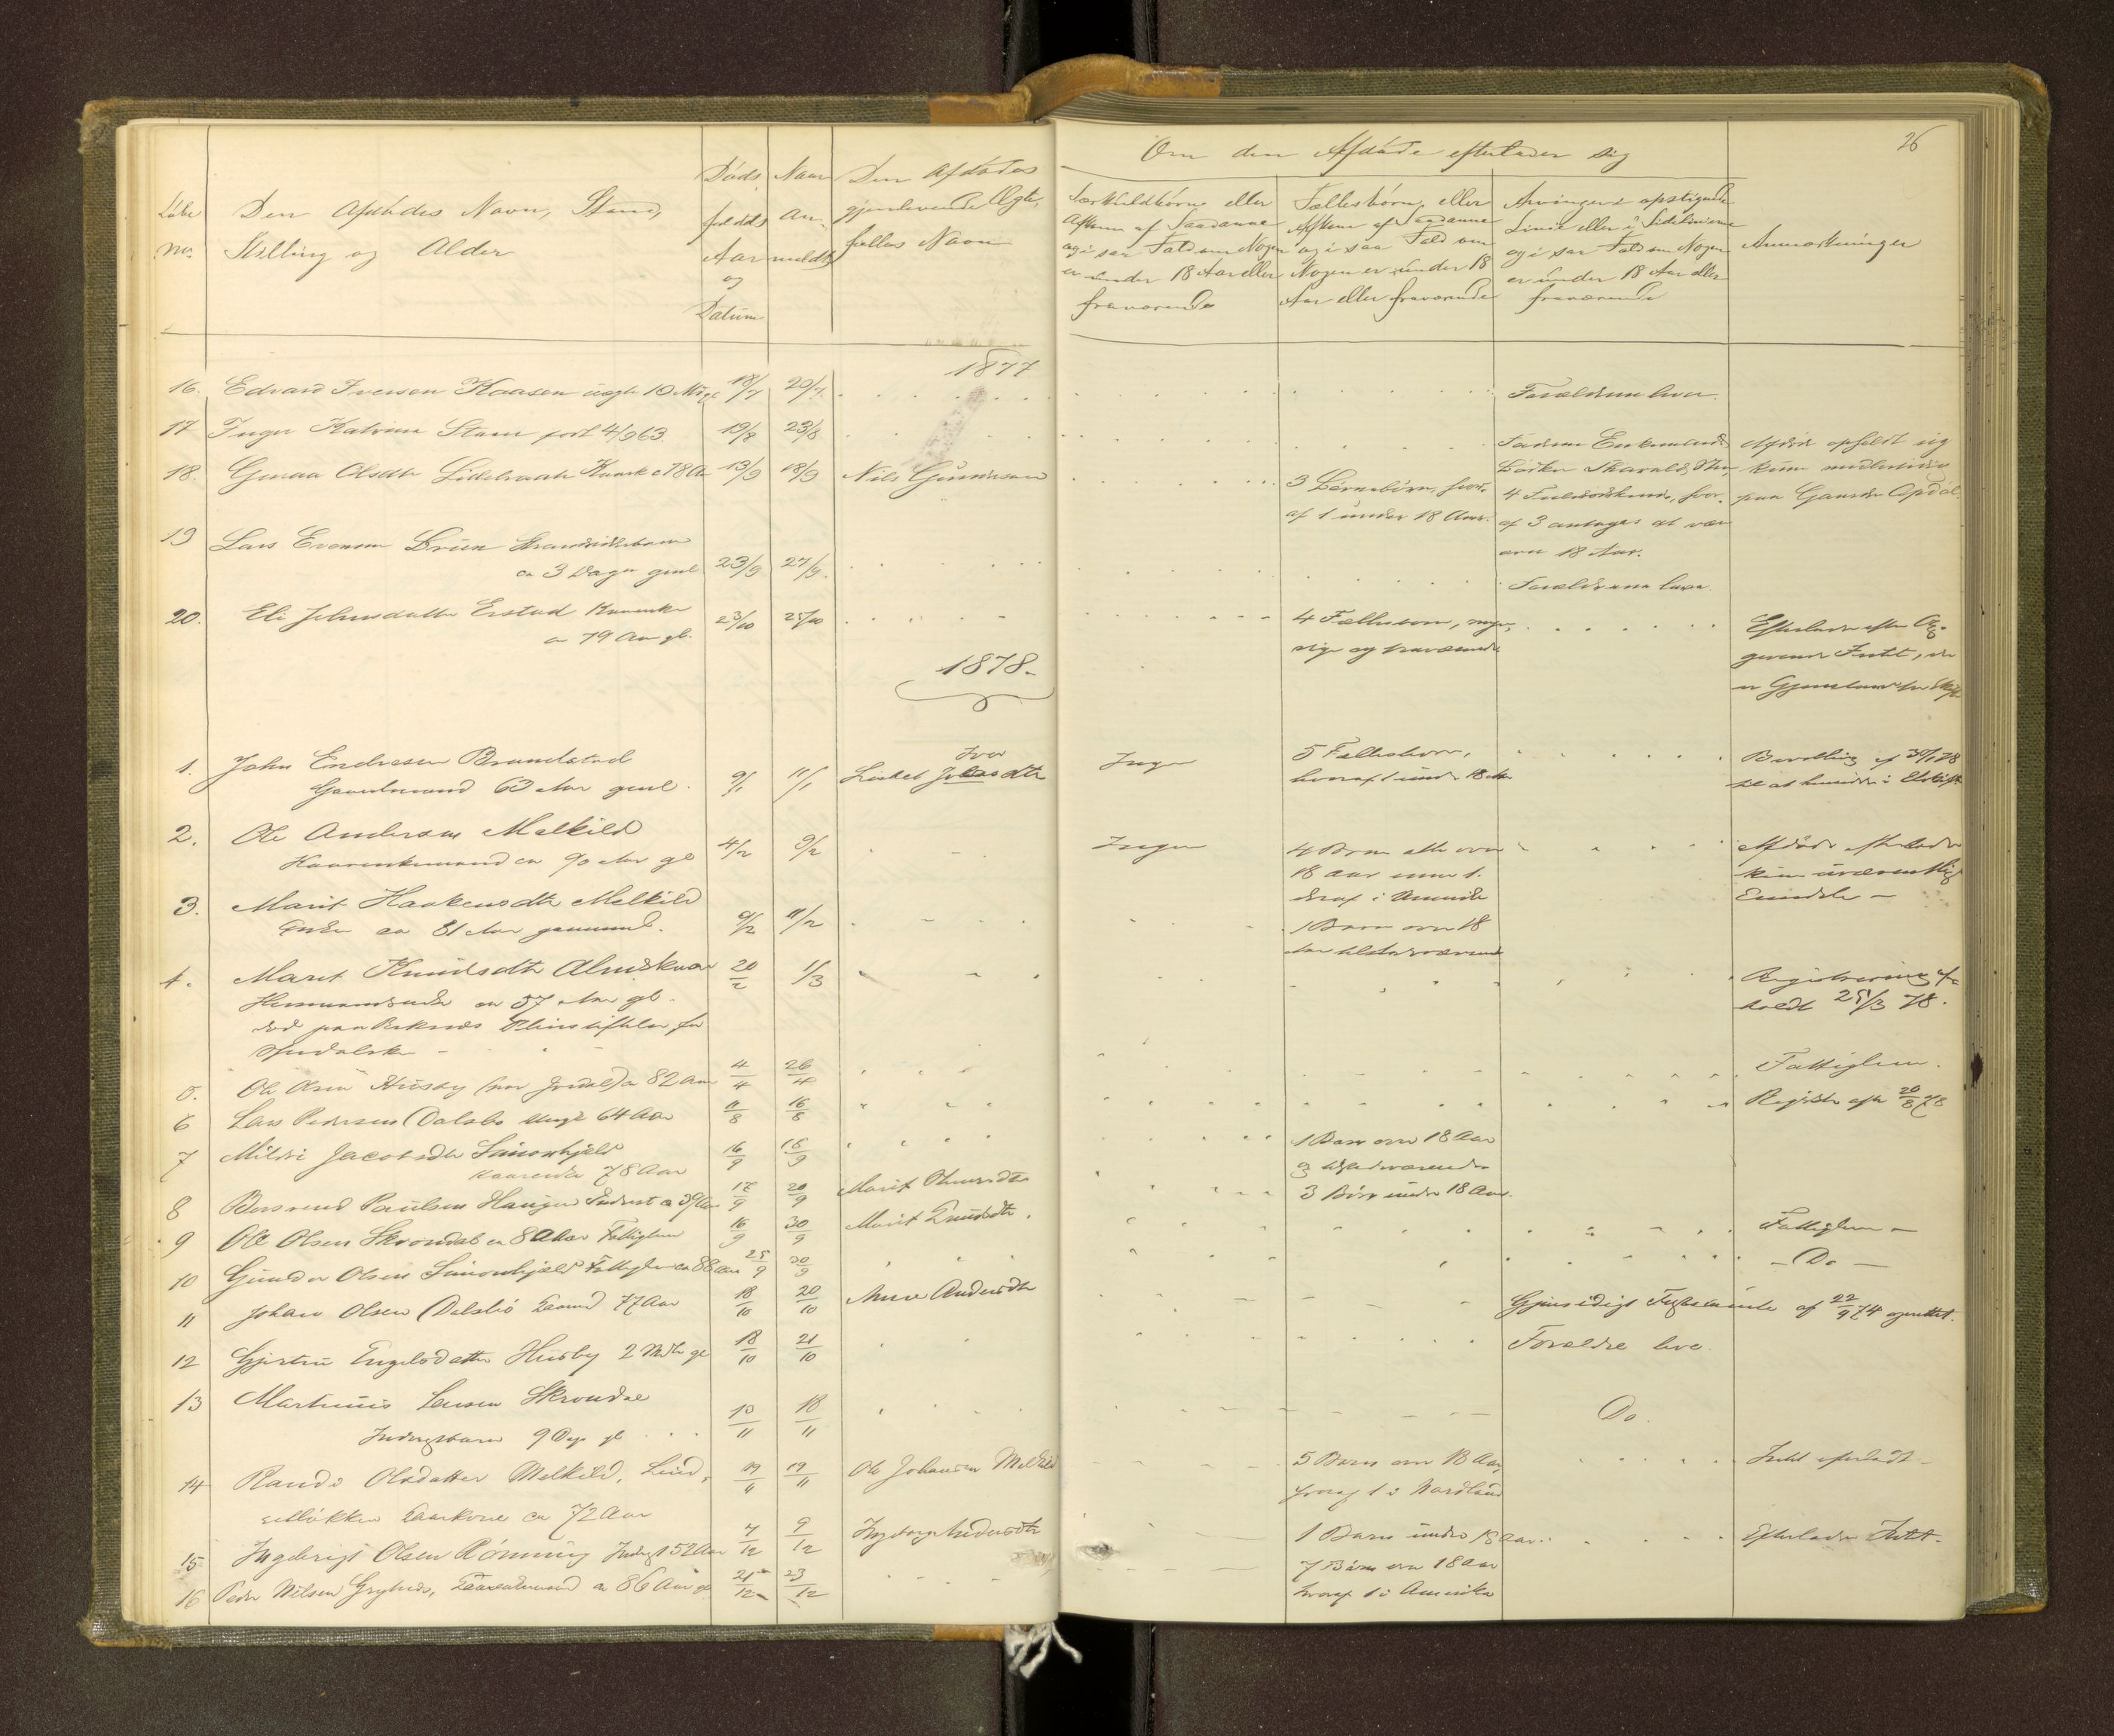 26
Om den Afdøde efterlader sig
Løbe
No.
Den Afdødes Navn, Stand,
Stilling og Alder
Døds
faldets
Aar
og
Datum
Naar
An-
meldt
Den Afdødes
gjenlevende Ægte-
fælles Navn
Særkuldbørn eller
Afkom af Saadanne
og i saa Fald om Nogen
er under 18 Aar eller
fraværende
Fællesbørn eller
Afkom af Saadanne
og i saa Fald om
Nogen er under 18
Aar eller fraværende
Arvinger i opstigende
Linie eller i Sidelinierne
og i saa Fald om Nogen
er under 18 Aar eller
fraværende
Anmærkninger
1877
16. Edvard Iversen Kaasen ugh 10 18/7 20/7 Forældrene lever.
17 Inger Katrine født 4/9 63. 19/8 23/8
18. Olsdtr 78 Aar 13/9 18/9 Nils Gunnarsen 3 Børnebørn, hvor-
af 1 under 18 Aar.
4 hvor-
af 3 antages at være
over 18 Aar.
Afdøde opholdt sig
kun midlertidig
paa Gaarden Opdøl
19 Lars Evensen
ca 3 Dage gml 23/9 27/9 Forældrene leve
20. Eli Johnsdatter Erstad
ca 79 Aar gl. 23/10 25/10 4 Fællesbørn, myn-
dige og fraværende
Efterlader efter
givende Intet, der
er Gjenstand for Skifte
1878.
1. John Endresen Brandstad
Gaardmand 63 Aar gml. 9/1 11/1 Lisbet Ivarsdtr Ingen 5 Fællesbørn,
hvoraf 1 under 18 Aar
Bevilling af 30/1 78
til at hensidde i Uskifte
2. Ole Andersen Melkild
Kaarenkemand ca 90 Aar gl 4/2 9/2 Ingen 4 Børn alle over
18 Aar
deraf i Amerika
Afdøde efterlader
kun uvæsentlig
Eiendele -
3. Marit Haakensdtr Melkild
Enke ca 81 Aar gammel. 9/2 11/2 1 Barn over 18
Aar tilstedeværende
4. Marit Knudsdtr
ca 57 Aar gl.
død paa Reknæs Pleiestiftelse for
Spedalske - 20/2 1/3 Registrering af-
holdt 25/3 78.
5. Ole Olsen Husby ca 82 Aar 4/4 26/4 Fattiglem.
6 Lars Pedersen Dalsbø 64 Aar 11/8 16/8 Registr. 20/8 78
7 Mildri Jacobsdtr Simonhjeld
78 Aar 16/9 18/9 1 Barn over 18 Aar
og tilstedeværende
8 Paulsen Haugen 39 Aar 17/9 20/9 Marit 3 Børn under 18 Aar.
9 Ole Olsen Skrondal ca 80 Aar Fattiglem 16/9 30/9 Marit Knudsdtr. Fattiglem -
10 Gunder Olsen Simonhjeld Fattiglem ca 88 Aar 25/9 30/9 - Do -
11 Johan Olsen Dalsbø 77 Aar 18/10 20/10 Anne Andersdtr Gjensidigt Testamente af 22/9 74 oprettet.
12 Gjertru Engelsdatter Husby 2 Mdr gl 18/10 21/10 Forældre leve.
13 Martinus Larsen Skrondal
Inderstbarn 9 Dage gl 10/11 18/11 Do.
14 Randi Olsdatter Melkild, Lind-
setløkken Kaarkone ca 72 Aar 17/11 19/11 Ole Johansen Melkild 5 Børn over 18 Aar,
hvoraf 1 i Nordland
Intet efterladt -
15 Ingebrigt Olsen Rønning Inderst 52 Aar 7/12 9/12 Ingeborg Andersdtr 1 Barn under 18 Aar. Efterlader Intet -
16 Peder Nilsen ca 86 Aar gl 21/12 23/12 7 Børn over 18 Aar
hvoraf 1 i Amerika